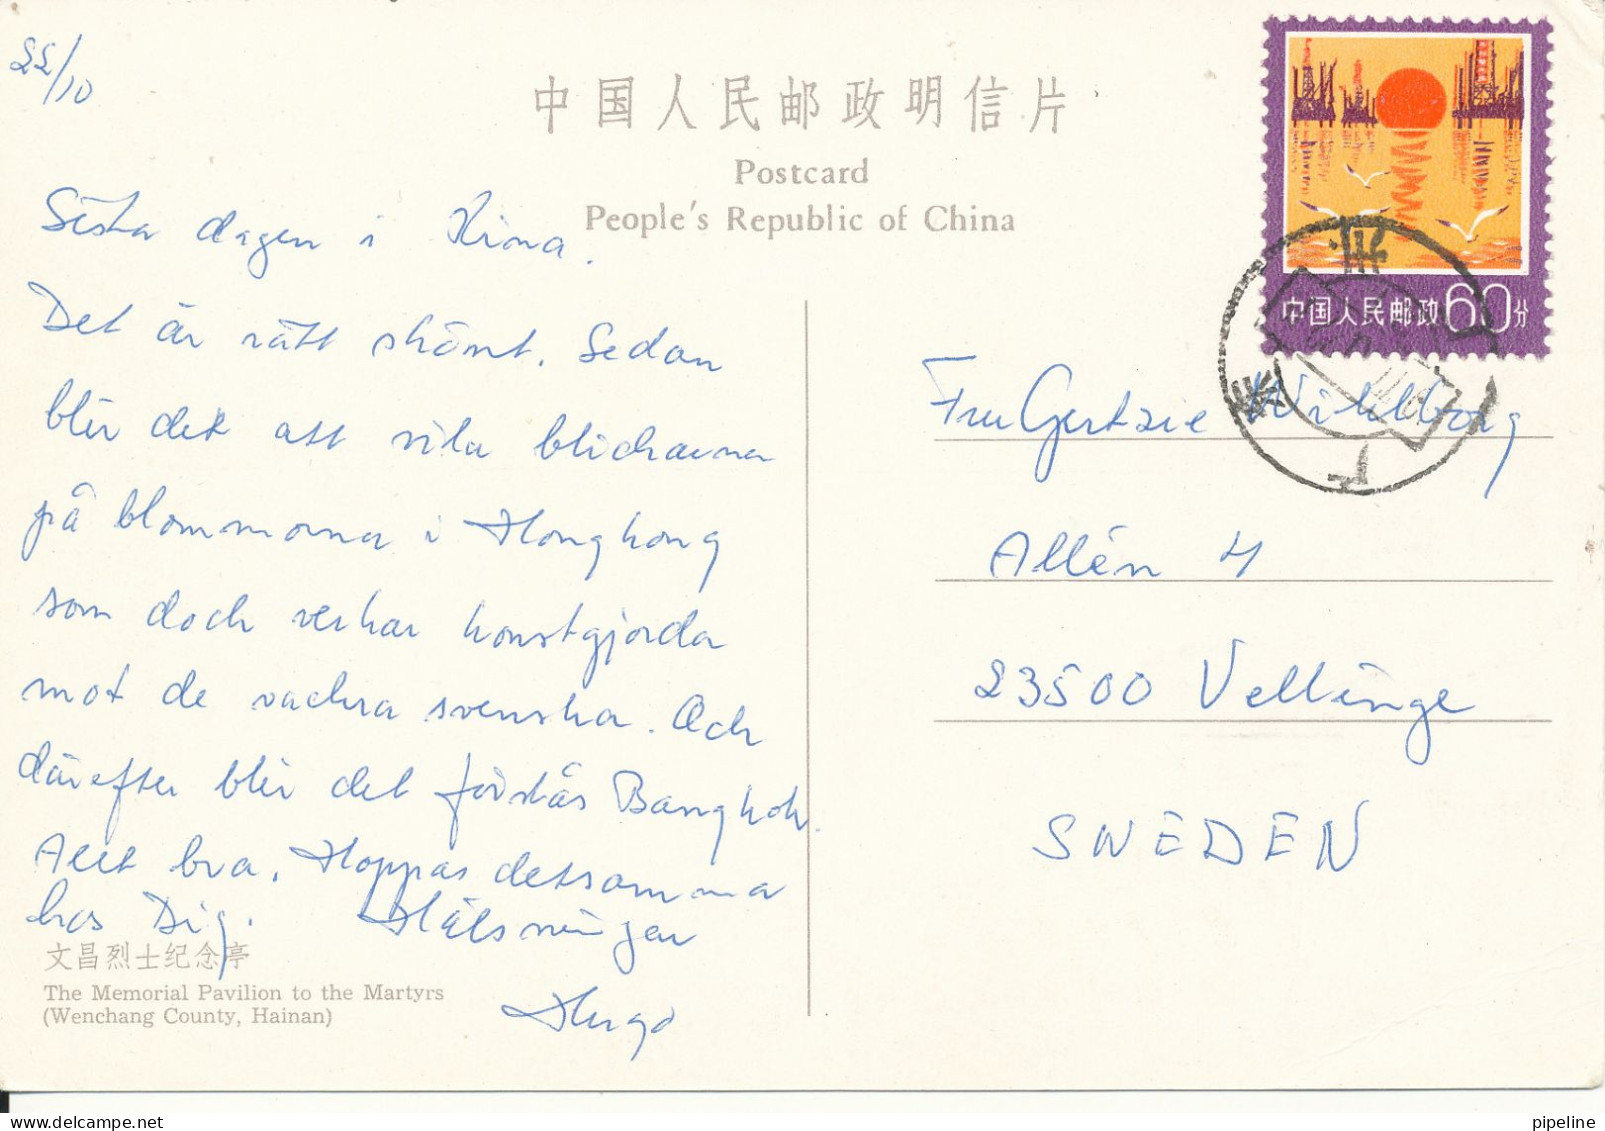 22/10
中国人民邮政明信片
Postcard
People's Republic of China
中国人民邮政60分
广
Sista dagen i Kina.
Det är rätt skönt. Sedan
blir det att vila blickarna
på blommorna i Hongkong
som dock verkar konstgjorda
mot de vackra svenska. Och
därefter blir det förstås Bangkok.
Allt bra. Hoppas detsamma
hos Dig. Hälsningar
Hugo
文昌烈士纪念亭
The Memorial Pavilion to the Martyrs
(Wenchang County, Hainan)
Fru Wihlborg
Allén 4
23500 Vellinge
SWEDEN
pipeline